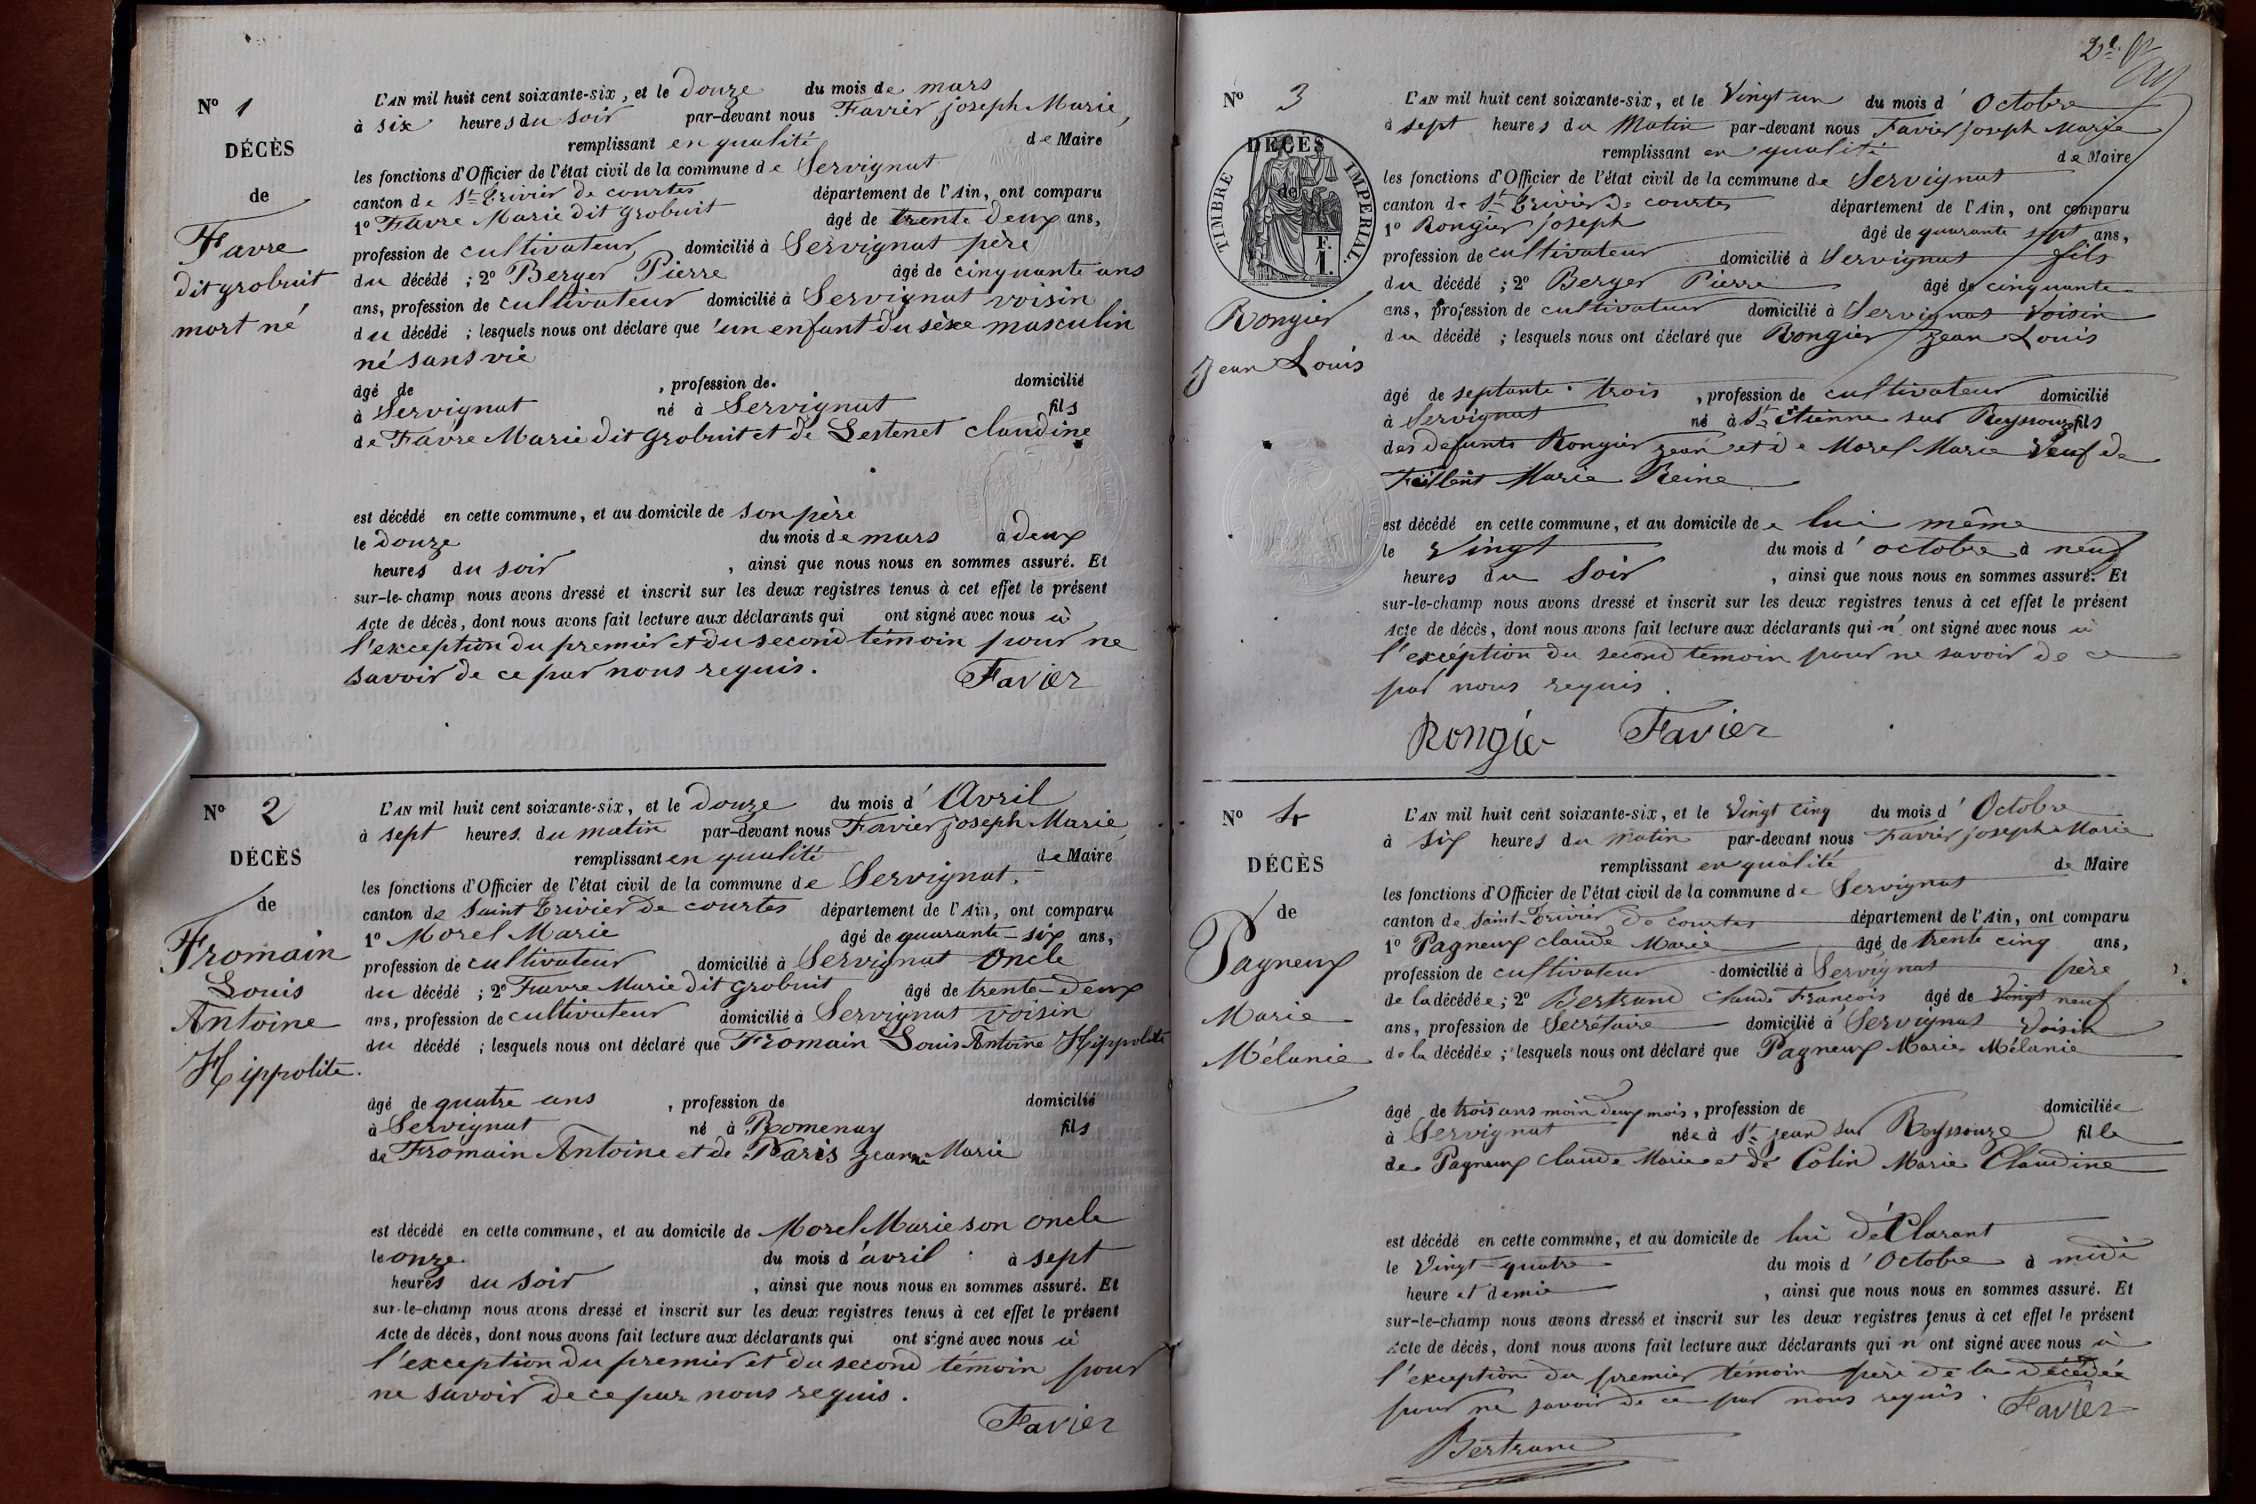 No 1
DÉCÈS
de
Favre
dit grobuit
mort né
L'AN mil huit cent soixante-six, et le douze du mois de mars
à six heures du soir par-devant nous Favier joseph Marie,
remplissant en qualité de Maire
les fonctions d'Officier de l'état civil de la commune de Servignat
canton de St Trivier de courtes département de l'Ain, ont comparu
1o Favre Marie dit grobuit âgé de trente deux ans,
profession de cultivateur domicilié à Servignat père
du décédé ; 2o Berger Pierre âgé de cinquante ans
ans, profession de cultivateur domicilié à Servignat voisin
du décédé ; lesquels nous ont déclaré que un enfant du sèxe masculin
né sans vie
âgé de , profession de. domicilié
à Servignat né à Servignat fils
de Favre Marie dit grobuit et de Sestenet claudine
est décédé en cette commune, et au domicile de son père
le douze du mois de mars à deux
heures du soir , ainsi que nous nous en sommes assuré. Et
sur-le-champ nous avons dressé et inscrit sur les deux registres tenus à cet effet le présent
Acte de décès, dont nous avons fait lecture aux déclarants qui ont signé avec nous à
l'exception du premier et du second témoin pour ne
savoir de ce par nous requis.
Favier
No 2
DÉCÈS
de
Fromain
Louis
Antoine
Hippolite.
L'AN mil huit cent soixante-six, et le douze du mois d'Avril
à sept heures du matin par-devant nous Favier joseph Marie,
remplissant en qualité de Maire
les fonctions d'Officier de l'état civil de la commune de Servignat.
canton de Saint Trivier de courtes département de l'Ain, ont comparu
1o Morel Marie âgé de quarante-six ans,
profession de cultivateur domicilié à Servignat Oncle
du décédé ; 2o Favre Marie dit grobuit âgé de trente-deux
ans, profession de cultivateur domicilié à Servignat voisin
du décédé ; lesquels nous ont déclaré que Fromain Louis Antoine Hippolite
âgé de quatre ans , profession de domicilié
à Servignat né à Romenay fils
de Fromain Antoine et de Paris jeanne Marie
est décédé en cette commune, et au domicile de Morel Marie son oncle
le onze du mois d'avril à sept
heures du soir , ainsi que nous nous en sommes assuré. Et
sur-le-champ nous avons dressé et inscrit sur les deux registres tenus à cet effet le présent
Acte de décès, dont nous avons fait lecture aux déclarants qui ont signé avec nous à
l'exception du premier et du second témoin pour
ne savoir de ce par nous requis.
Favier
No 3
DÉCÈS
de
TIMBRE IMPERIAL.
F.
1.
Rongier
Jean Louis
L'AN mil huit cent soixante-six, et le Vingt un du mois d'Octobre
à sept heures du Matin par-devant nous Favier joseph Marie
remplissant en qualité de Maire
les fonctions d'Officier de l'état civil de la commune de Servignat
canton de St Trivier de courtes département de l'Ain, ont comparu
1o Rongier joseph âgé de quarante sept ans,
profession de cultivateur domicilié à Servignat fils
du décédé ; 2o Berger Pierre âgé de cinquante
ans, profession de cultivateur domicilié à Servignat Voisin
du décédé ; lesquels nous ont déclaré que Rongier Jean Louis
âgé de septante-trois , profession de cultivateur domicilié
à Servignat né à St étienne sur Reyssouze fils
des defunts Rongier jean et de Morel Marie Veuf de
Feillent Marie Reine
est décédé en cette commune, et au domicile de lui même
le Vingt du mois d'octobre à neuf
heures du Soir , ainsi que nous nous en sommes assuré. Et
sur-le-champ nous avons dressé et inscrit sur les deux registres tenus à cet effet le présent
Acte de décès, dont nous avons fait lecture aux déclarants qui n' ont signé avec nous à
l'exception du second témoin pour ne savoir de ce
par nous requis.
Rongier Favier
No 4
DÉCÈS
de
Pagneux
Marie
Mélanie
L'AN mil huit cent soixante-six, et le Vingt cinq du mois d'Octobre
à six heures du matin par-devant nous Favier joseph Marie
remplissant en qualité de Maire
les fonctions d'Officier de l'état civil de la commune de Servignat
canton de Saint-Trivier de courtes département de l'Ain, ont comparu
1o Pagneux claude Marie âgé de trente cinq ans,
profession de cultivateur domicilié à Servignat père
de la décédée ; 2o Bertrand claude François âgé de Vingt neuf
ans, profession de Secrétaire domicilié à Servignat Voisin
de la décédée ; lesquels nous ont déclaré que Pagneux Marie Mélanie
âgé de trois ans moin deux mois, profession de domiciliée
à Servignat née à St jean sur Reyssouze fille
de Pagneux claude Marie et de Colin Marie Claudine
est décédé en cette commune, et au domicile de lui déClarant
le Vingt-quatre du mois d'Octobre à midi
heure et demie , ainsi que nous nous en sommes assuré. Et
sur-le-champ nous avons dressé et inscrit sur les deux registres tenus à cet effet le présent
Acte de décès, dont nous avons fait lecture aux déclarants qui n' ont signé avec nous à
l'exception du premier témoin père de la décédée
pour ne savoir de ce par nous requis.
Favier
Bertrand